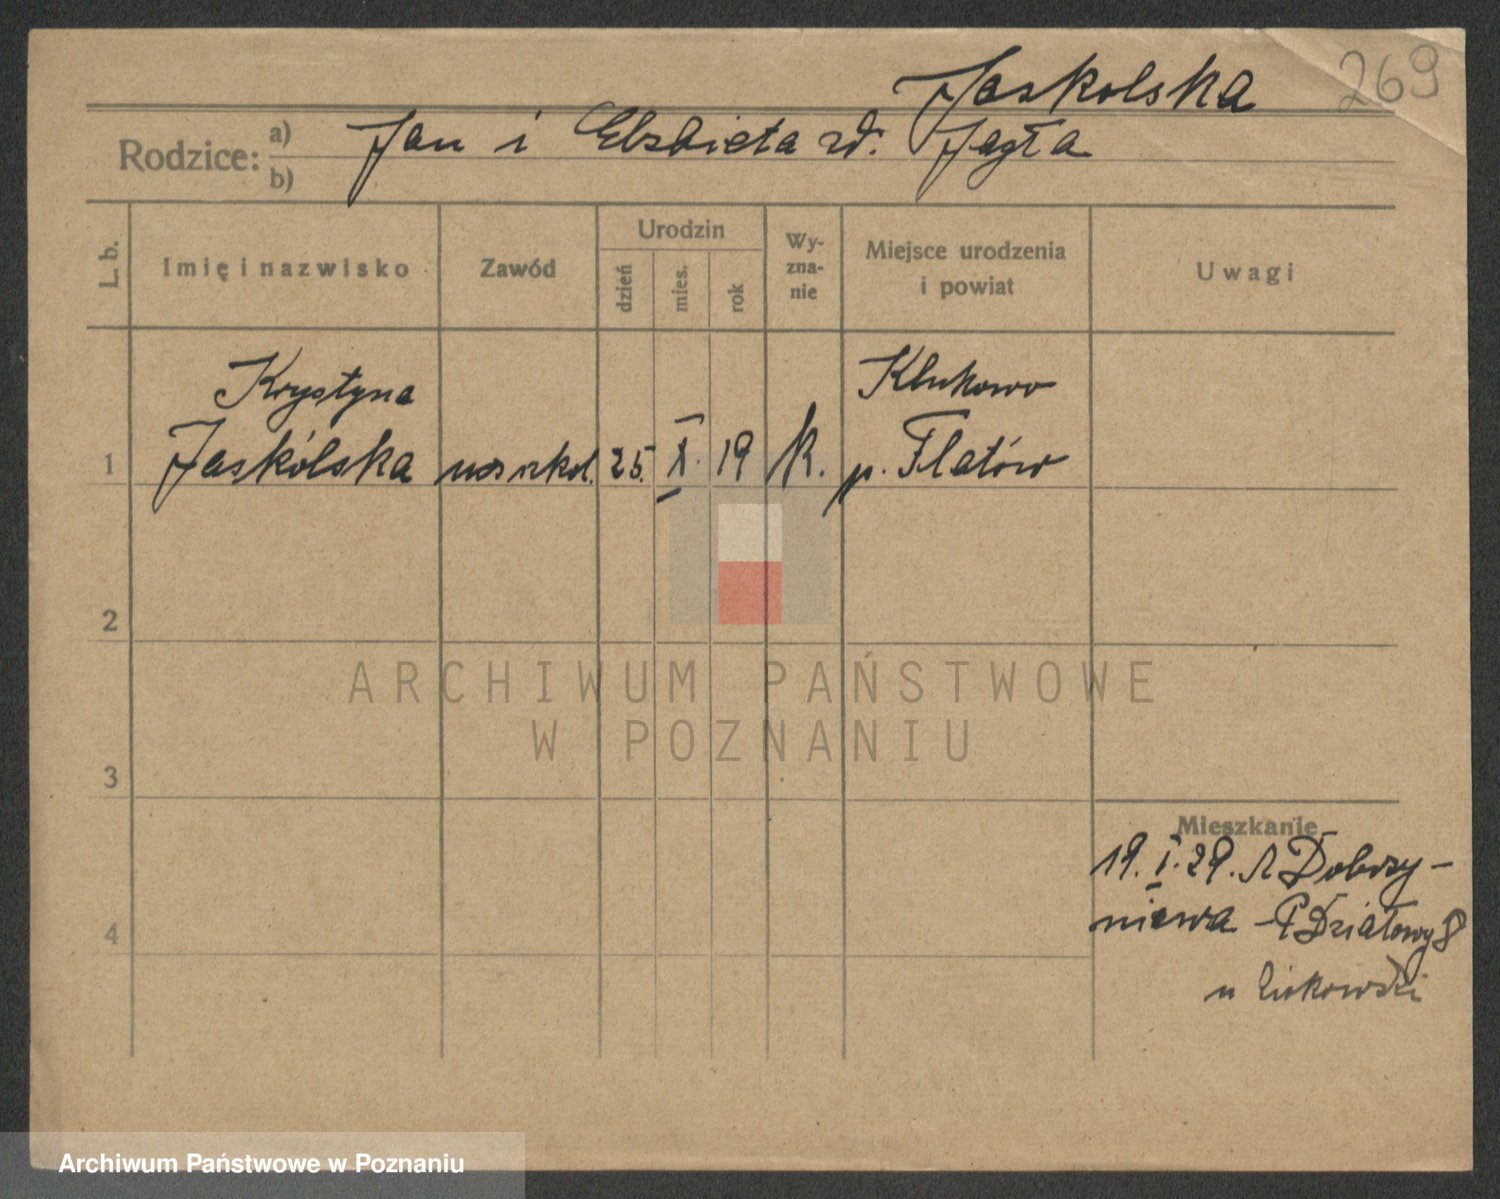 Jaskolska
269
Rodzice: a) b)
Jan i Elzbieta zd. Jagła
L. b.
Imię i nazwisko
Zawód
Urodzin
dzień
mies.
rok
Wy-
zna-
nie
Miejsce urodzenia
i powiat
Uwagi
Krystyna
Klukowo
1 Jaskólska 25. X. 19 k. p. Flatów
2
ARCHIWUM PAŃSTWOWE
W POZNANIU
3
Mieszkanie
19. I. 29. Dobrzy-
niewa - P Działowy 8
4
u
Archiwum Państwowe w Poznaniu